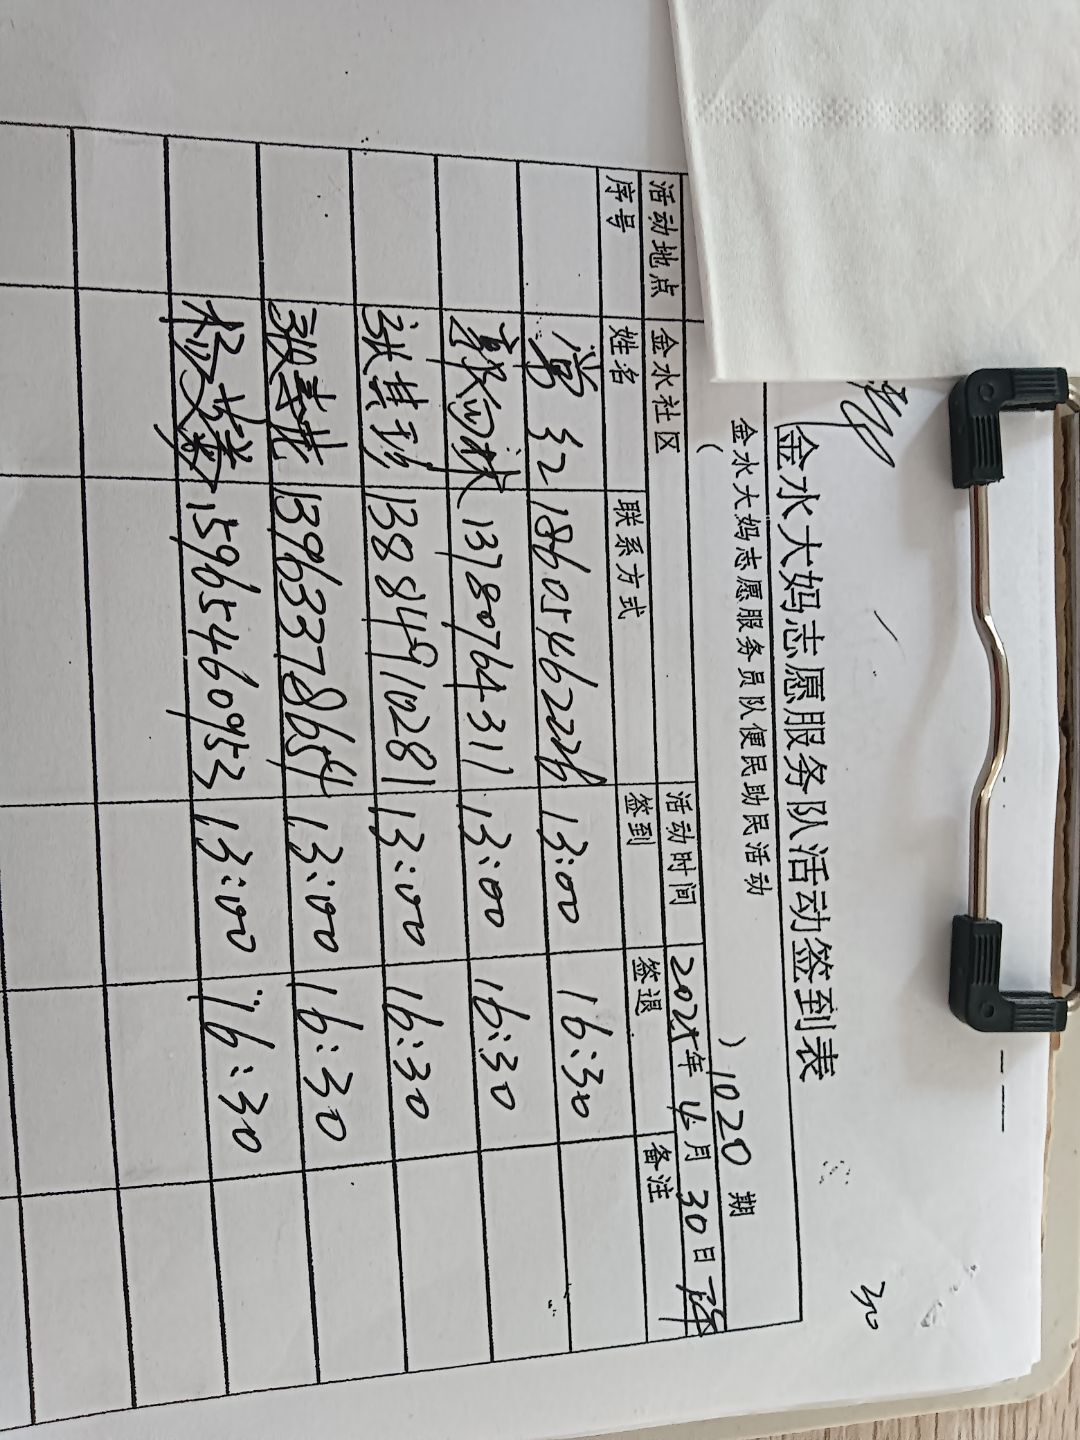 金水大妈志愿服务队活动签到表
金水大妈志愿服务员队便民助民活动
( ) 1020 期
活动地点 金水社区 活动时间 2025年 4月 30日
序号 姓名 联系方式 签到 签退 备注
18605462226 13:00 16:30
13780764311 13:00 16:30
张其珍 13884910281 13:00 16:30
13963378654 13:00 16:30
杨艾菊 15965460953 13:00 16:30
30